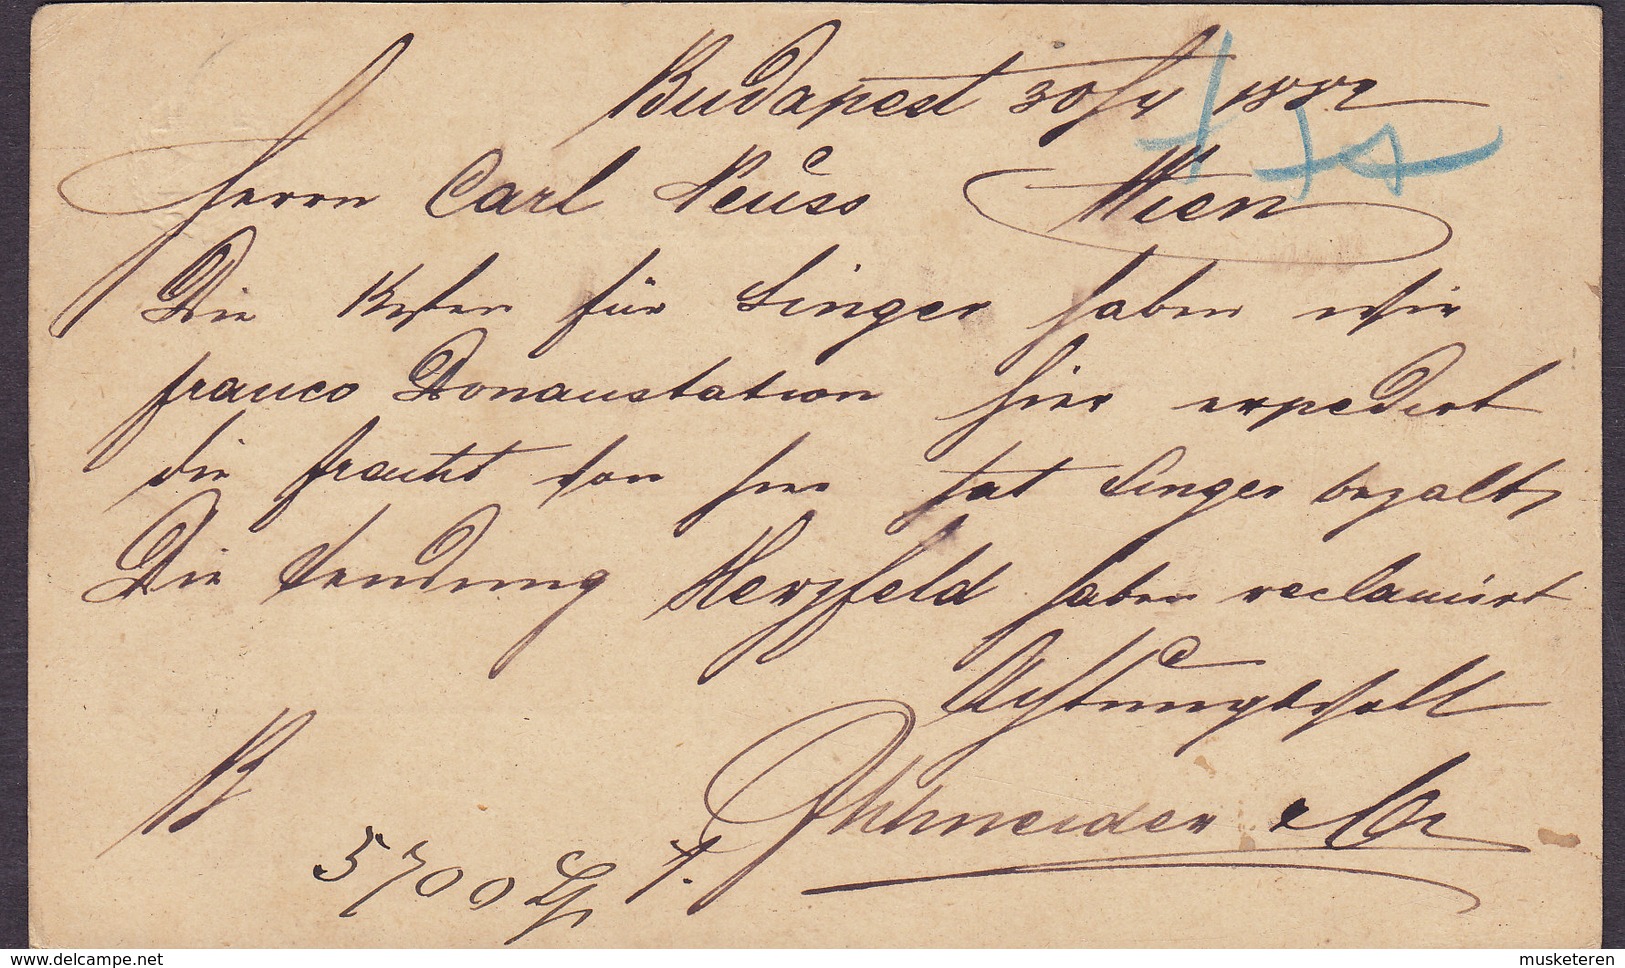 Budapest 30/4 1882
Herrn Carl Neuss Wien
Die Kisten für Singer haben wir
franco Donaustation hier expedirt
die Fracht von hier hat Singer bezalt,
Die Sendung Herzfeld haben reclamirt
Achtungsvoll
Schneider & Co
5700
www.delcampe.net
musketeren